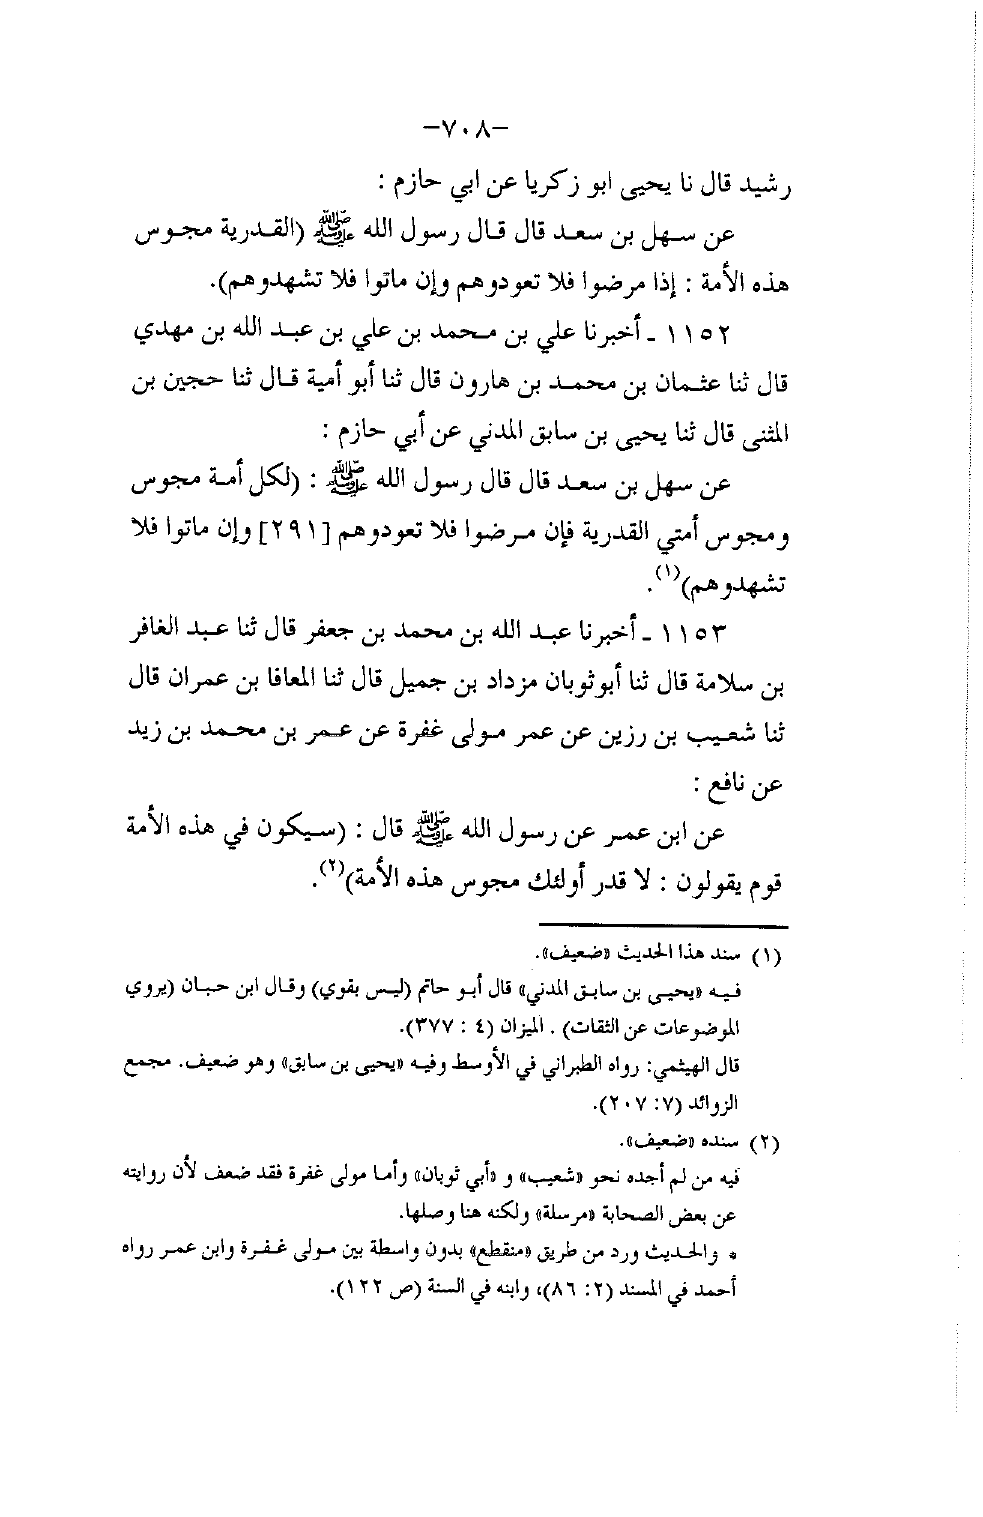 –٧٠٨–
رشيد قال نا يحيى ابو زكريا عن ابي حازم :
عن سهل بن سعد قال قال رسول الله ﷺ (القدرية مجوس
هذه الأمة : إذا مرضوا فلا تعودوهم وإن ماتوا فلا تشهدوهم).
١١٥٢ ـ أخبرنا علي بن محمد بن علي بن عبد الله بن مهدي
قال ثنا عثمان بن محمد بن هارون قال ثنا أبو أمية قال ثنا حجين بن
المثنى قال ثنا يحيى بن سابق المدني عن أبي حازم :
عن سهل بن سعد قال قال رسول الله ﷺ : (لكل أمة مجوس
ومجوس أمتي القدرية فإن مرضوا فلا تعودوهم [٢٩١] وإن ماتوا فلا
تشهدوهم)(١).
١١٥٣ ـ أخبرنا عبد الله بن محمد بن جعفر قال ثنا عبد الغافر
بن سلامة قال ثنا أبوثوبان مزداد بن جميل قال ثنا المعافا بن عمران قال
ثنا شعيب بن رزين عن عمر مولى غفرة عن عمر بن محمد بن زيد
عن نافع :
عن ابن عمر عن رسول الله ﷺ قال : (سيكون في هذه الأمة
قوم يقولون : لا قدر أولئك مجوس هذه الأمة)(٢).
(١) سند هذا الحديث «ضعيف».
فيه «يحيى بن سابق المدني» قال أبو حاتم (ليس بقوي) وقال ابن حبان (يروي
الموضوعات عن الثقات) . الميزان (٤ : ٣٧٧).
قال الهيثمي: رواه الطبراني في الأوسط وفيه «يحيى بن سابق» وهو ضعيف. مجمع
الزوائد (٧: ٢٠٧).
(٢) سنده «ضعيف».
فيه من لم أجده نحو «شعيب» و «أبي ثوبان» وأما مولى غفرة فقد ضعف لأن روايته
عن بعض الصحابة «مرسلة» ولكنه هنا وصلها.
* والحديث ورد من طريق «منقطع» بدون واسطة بين مولى غفرة وابن عمر رواه
أحمد في المسند (٢: ٨٦)، وابنه في السنة (ص ١٢٢).